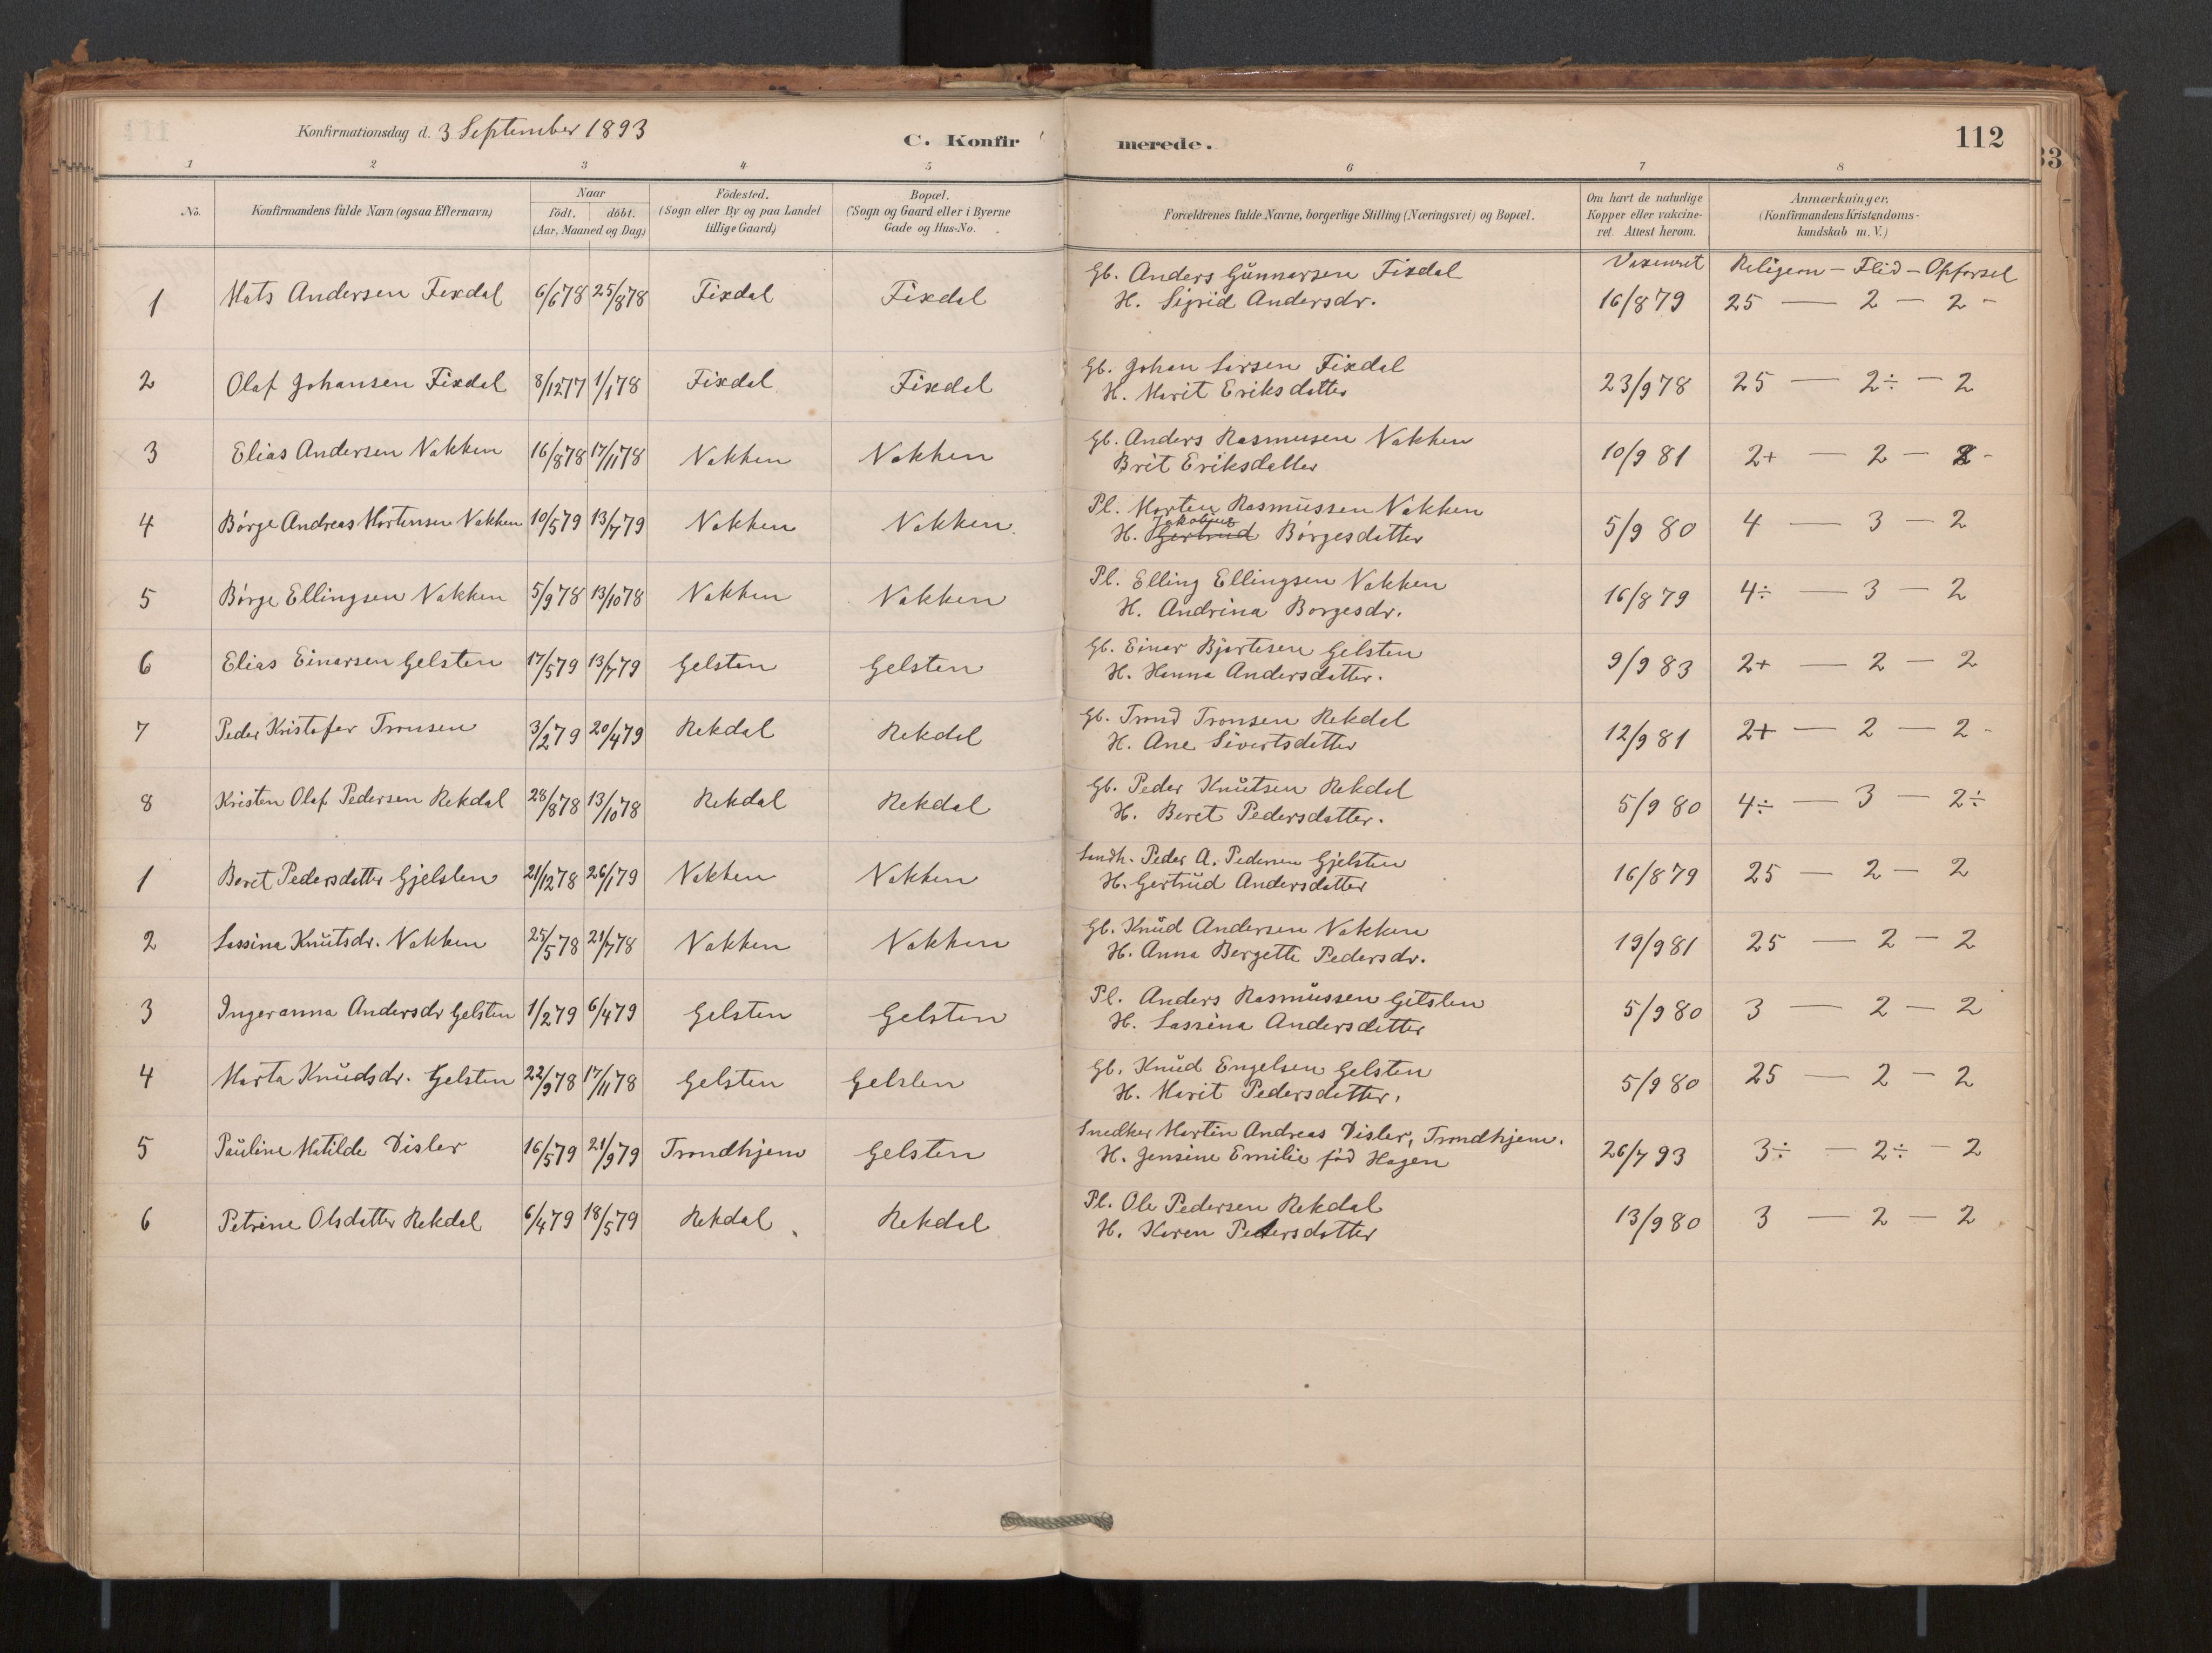 Konfirmationsdag d. 3 September 1893
C. Konfirmerede.
112
33
1 2 3 4 5 6 7 8
No. Konfirmandens fulde Navn (ogsaa Efternavn) Naar födt. döbt. (Aar, Maaned og Dag) Födested. (Sogn eller By og paa Landet tillige Gaard) Bopæl. (Sogn og Gaard eller i Byerne Gade og Hus-No. Forældrenes fulde Navne, borgerlige Stilling (Næringsvei) og Bopæl. Om havt de naturlige Kopper eller vakcineret. Attest herom. Anmærkninger. (Konfirmandens Kristendomskundskab m. V.)
Religion — Flid — Opførsel
1 Mats Andersen Fixdal 6/6 78 25/8 78 Fixdal Fixdal Gb. Anders Gunnarsen Fixdal 16/8 79 25 — 2 — 2 -
H. Sigrid Andersdr.
2 Olaf Johansen Fixdal 8/12 77 1/1 78 Fixdal Fixdal Gb. Johan Larsen Fixdal 23/9 78 25 — 2÷ — 2
H. Marit Eriksdatter
3 Elias Andersen Nakken 16/8 78 17/11 78 Nakken Nakken Gb. Anders Rasmusen Nakken 10/9 81 2+ — 2 — 2 -
Brit Eriksdatter
4 Børge Andreas Mortensen Nakken 10/5 79 13/7 79 Nakken Nakken. Pl. Morten Rasmussen Nakken 5/9 80 4 — 3 — 2
Jakobine
H. Gertrud Børgesdatter
5 Børge Ellingsen Nakken 5/9 78 13/10 78 Nakken Nakken Pl. Elling Ellingsen Nakken 16/8 79 4÷ — 3 — 2
H. Andrina Borgesdr.
6 Elias Einarsen Gelsten 17/5 79 13/7 79 Gelsten Gelsten Gb. Einar Bjartesen Gelsten 9/9 83 2+ — 2 — 2
H. Hanna Andersdatter.
7 Peder Kristofer Tronsen 3/2 79 20/4 79 Rekdal Rekdal Gb. Trond Tronsen Rekdal 12/9 81 2+ — 2 — 2 -
H. Ane Sivertsdatter
8 Kristen Olaf Pedersen Rekdal 28/8 78 13/10 78 Rekdal Rekdal Gb. Peder Knutsen Rekdal 5/9 80 4÷ — 3 — 2÷
H. Beret Pedersdatter.
1 Beret Pedersdatter Gjelsten 21/12 78 26/1 79 Nakken Nakken Landh. Peder A. Pedersen Gjelsten 16/8 79 25 — 2 — 2
H. Gertrud Andersdatter
2 Lassina Knutsdr. Nakken 25/5 78 21/7 78 Nakken Nakken Gb. Knud Andersen Nakken 19/9 81 25 — 2 — 2
H. Anna Bergette Pedersdr.
3 Ingeranna Andersdr Gelsten 1/2 79 6/4 79 Gelsten Gelsten Pl. Anders Rasmussen Gelsten 5/9 80 3 — 2 — 2
H. Lassina Andersdatter
4 Marta Knudsdr. Gelsten 22/9 78 17/11 78 Gelsten Gelsten Gb. Knud Engelsen Gelsten 5/9 80 25 — 2 — 2
H. Marit Pedersdatter.
5 Pauline Matilde Disler 16/5 79 21/9 79 Trondhjem Gelsten Snedker Martin Andreas Disler, Trondhjem. 26/7 93 3÷ — 2÷ — 2
H. Jensine Emilie fød Hagen
6 Petrine Olsdatter Rekdal 6/4 79 18/5 79 Rekdal Rekdal Pl. Ole Pedersen Rekdal 13/9 80 3 — 2 — 2
H. Karen Pedersdatter